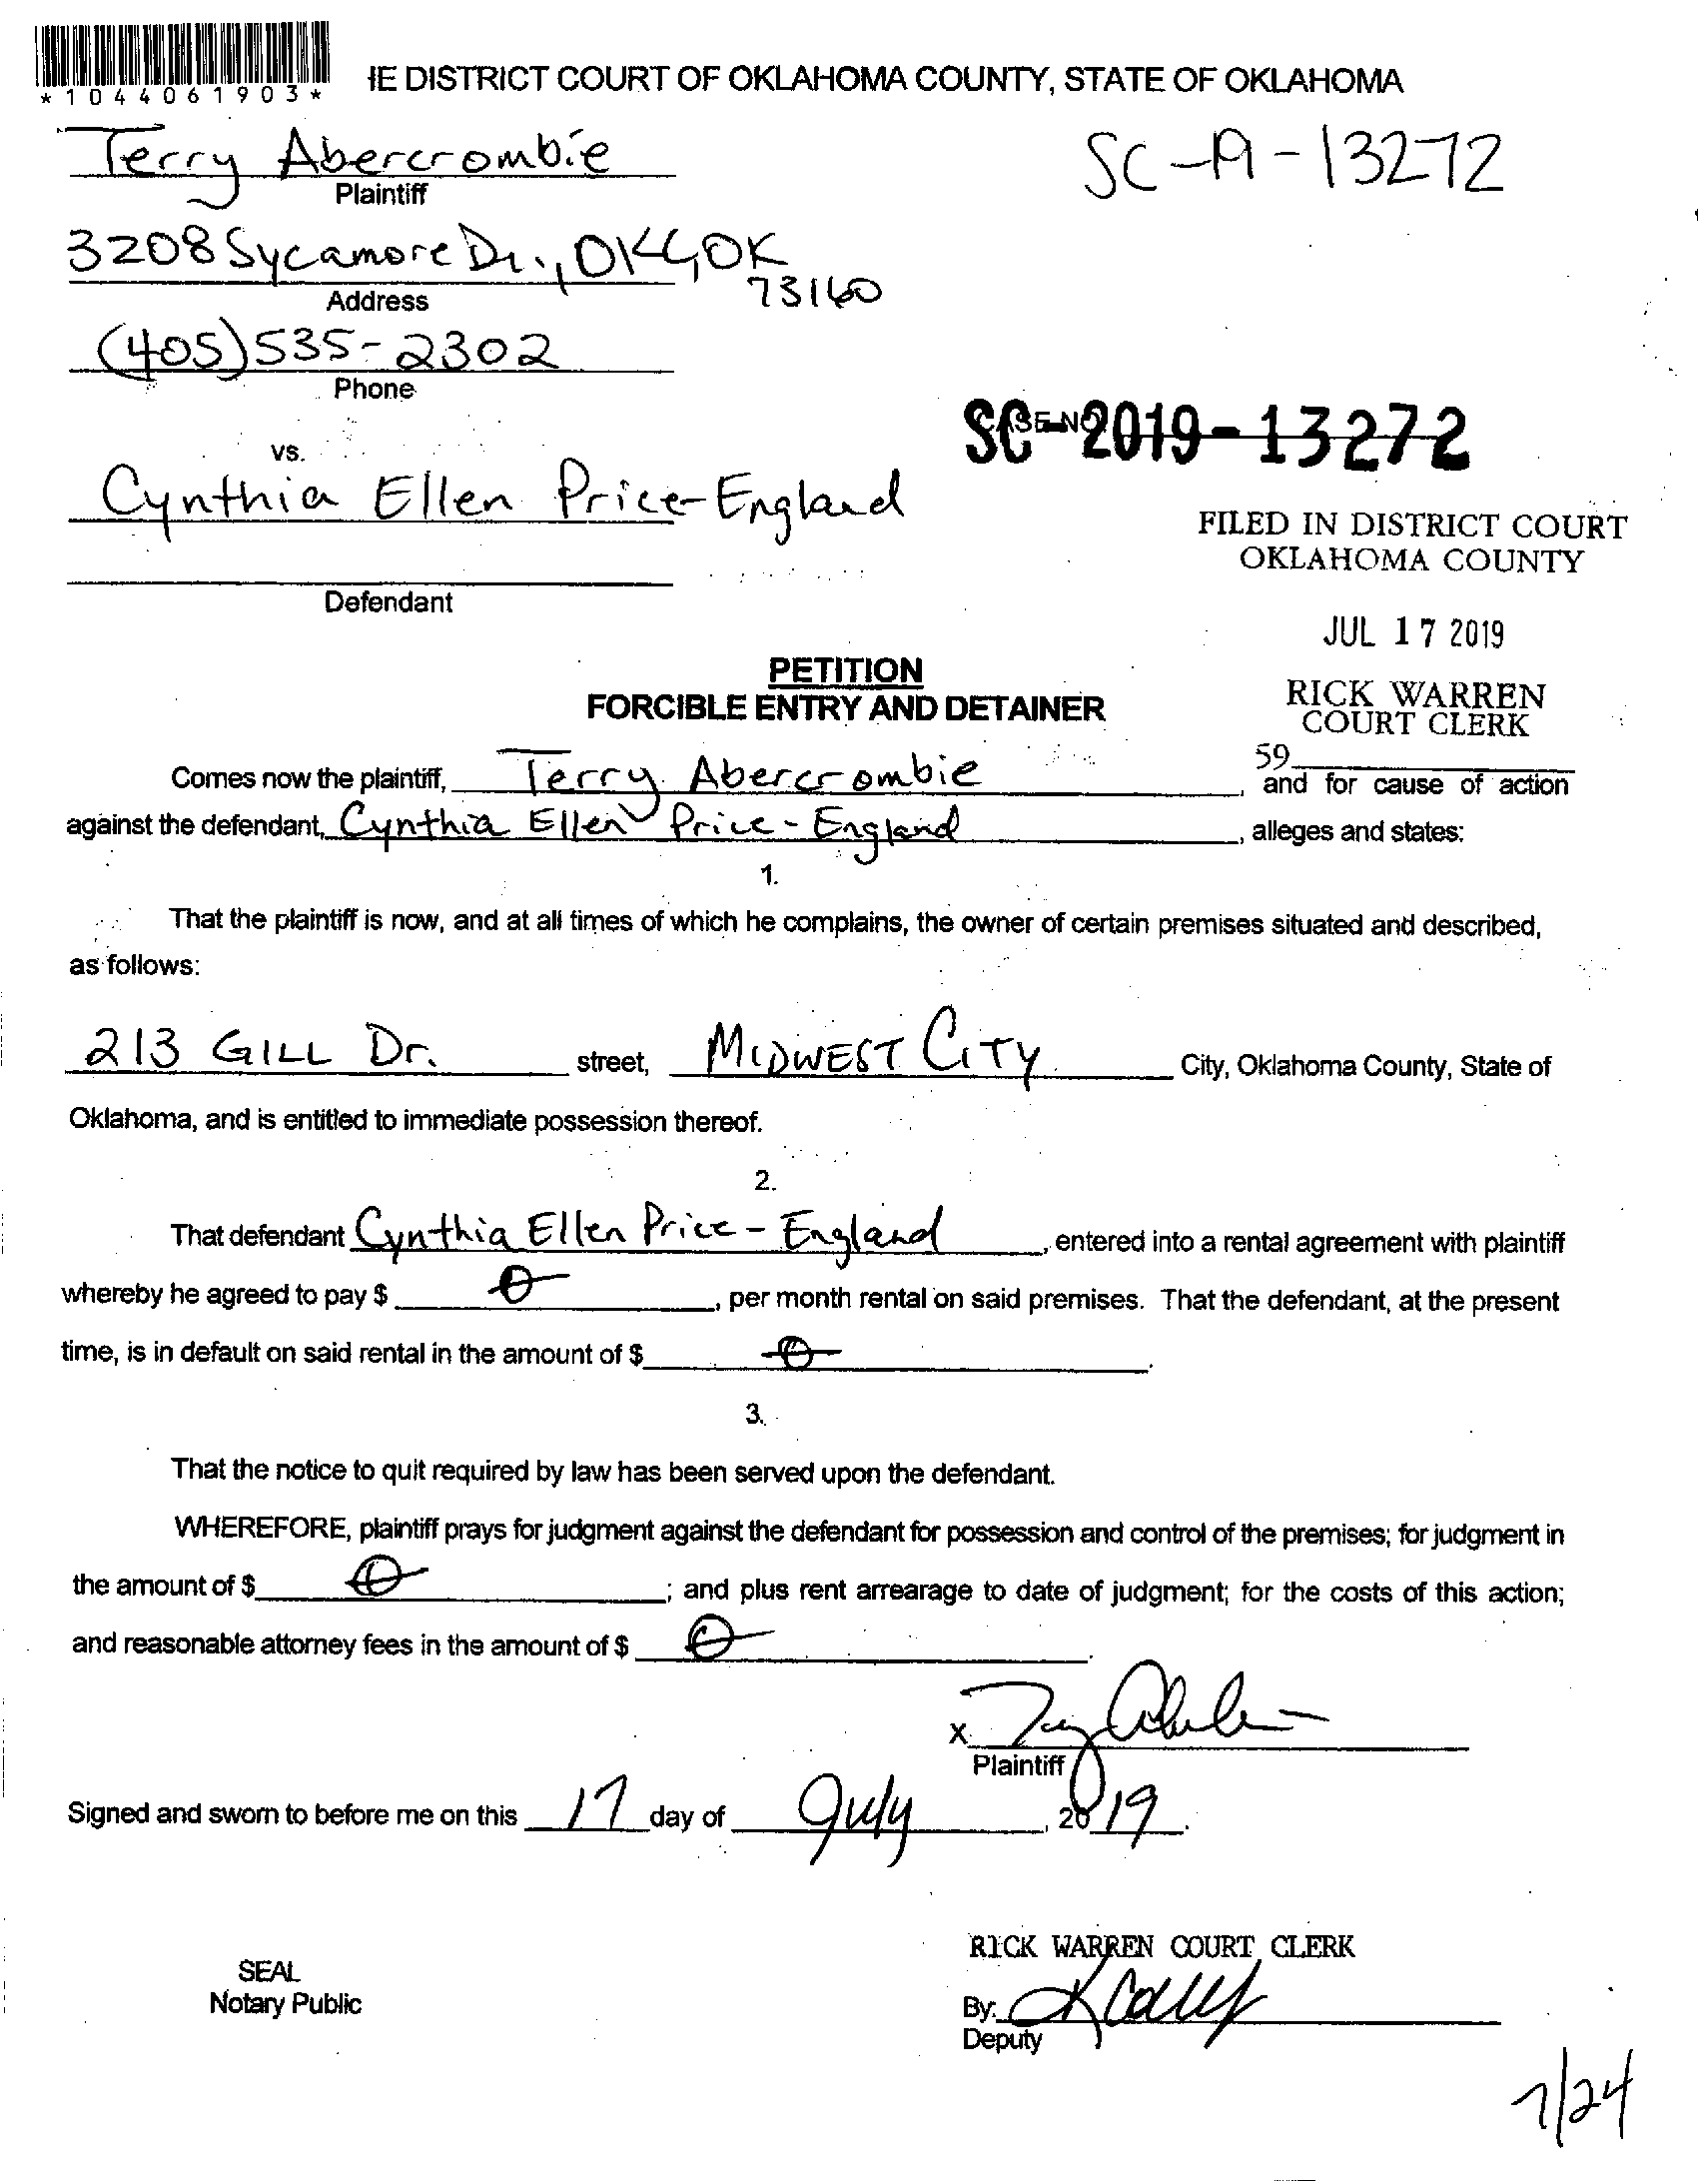 *1044061903*
IE DISTRICT COURT OF OKLAHOMA COUNTY, STATE OF OKLAHOMA
Terry Abercrombie
SC-19-13272
Plaintiff
3208 Sycamore Dr., OKC, OK
73160
Address
(405) 535-2302
Phone
CASE NO.
SC-2019-13272
vs.
Cynthia Ellen Price-England
FILED IN DISTRICT COURT
OKLAHOMA COUNTY
Defendant
JUL 17 2019
PETITION
FORCIBLE ENTRY AND DETAINER
RICK WARREN
COURT CLERK
59
Comes now the plaintiff, Terry Abercrombie, and for cause of action
against the defendant, Cynthia Ellen Price-England, alleges and states:
1.
That the plaintiff is now, and at all times of which he complains, the owner of certain premises situated and described,
as follows:
213 GILL Dr. street, MIDWEST CITY City, Oklahoma County, State of
Oklahoma, and is entitled to immediate possession thereof.
2.
That defendant Cynthia Ellen Price-England, entered into a rental agreement with plaintiff
whereby he agreed to pay $ 0, per month rental on said premises. That the defendant, at the present
time, is in default on said rental in the amount of $ 0.
3.
That the notice to quit required by law has been served upon the defendant.
WHEREFORE, plaintiff prays for judgment against the defendant for possession and control of the premises; for judgment in
the amount of $ 0; and plus rent arrearage to date of judgment; for the costs of this action;
and reasonable attorney fees in the amount of $ 0.
X
Plaintiff
Signed and sworn to before me on this 17 day of July, 2019.
RICK WARREN COURT CLERK
SEAL
Notary Public
By:
Deputy
7/24